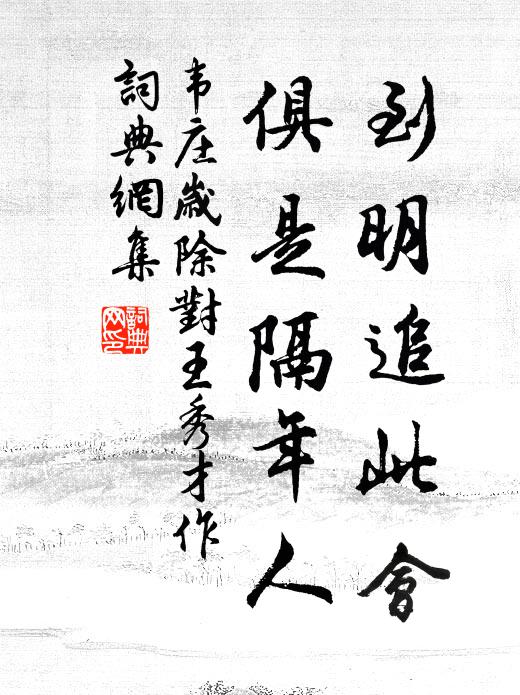 到明追此會
俱是隔年人
韦庄歲除對王秀才作
詞典網集
詞典
网印